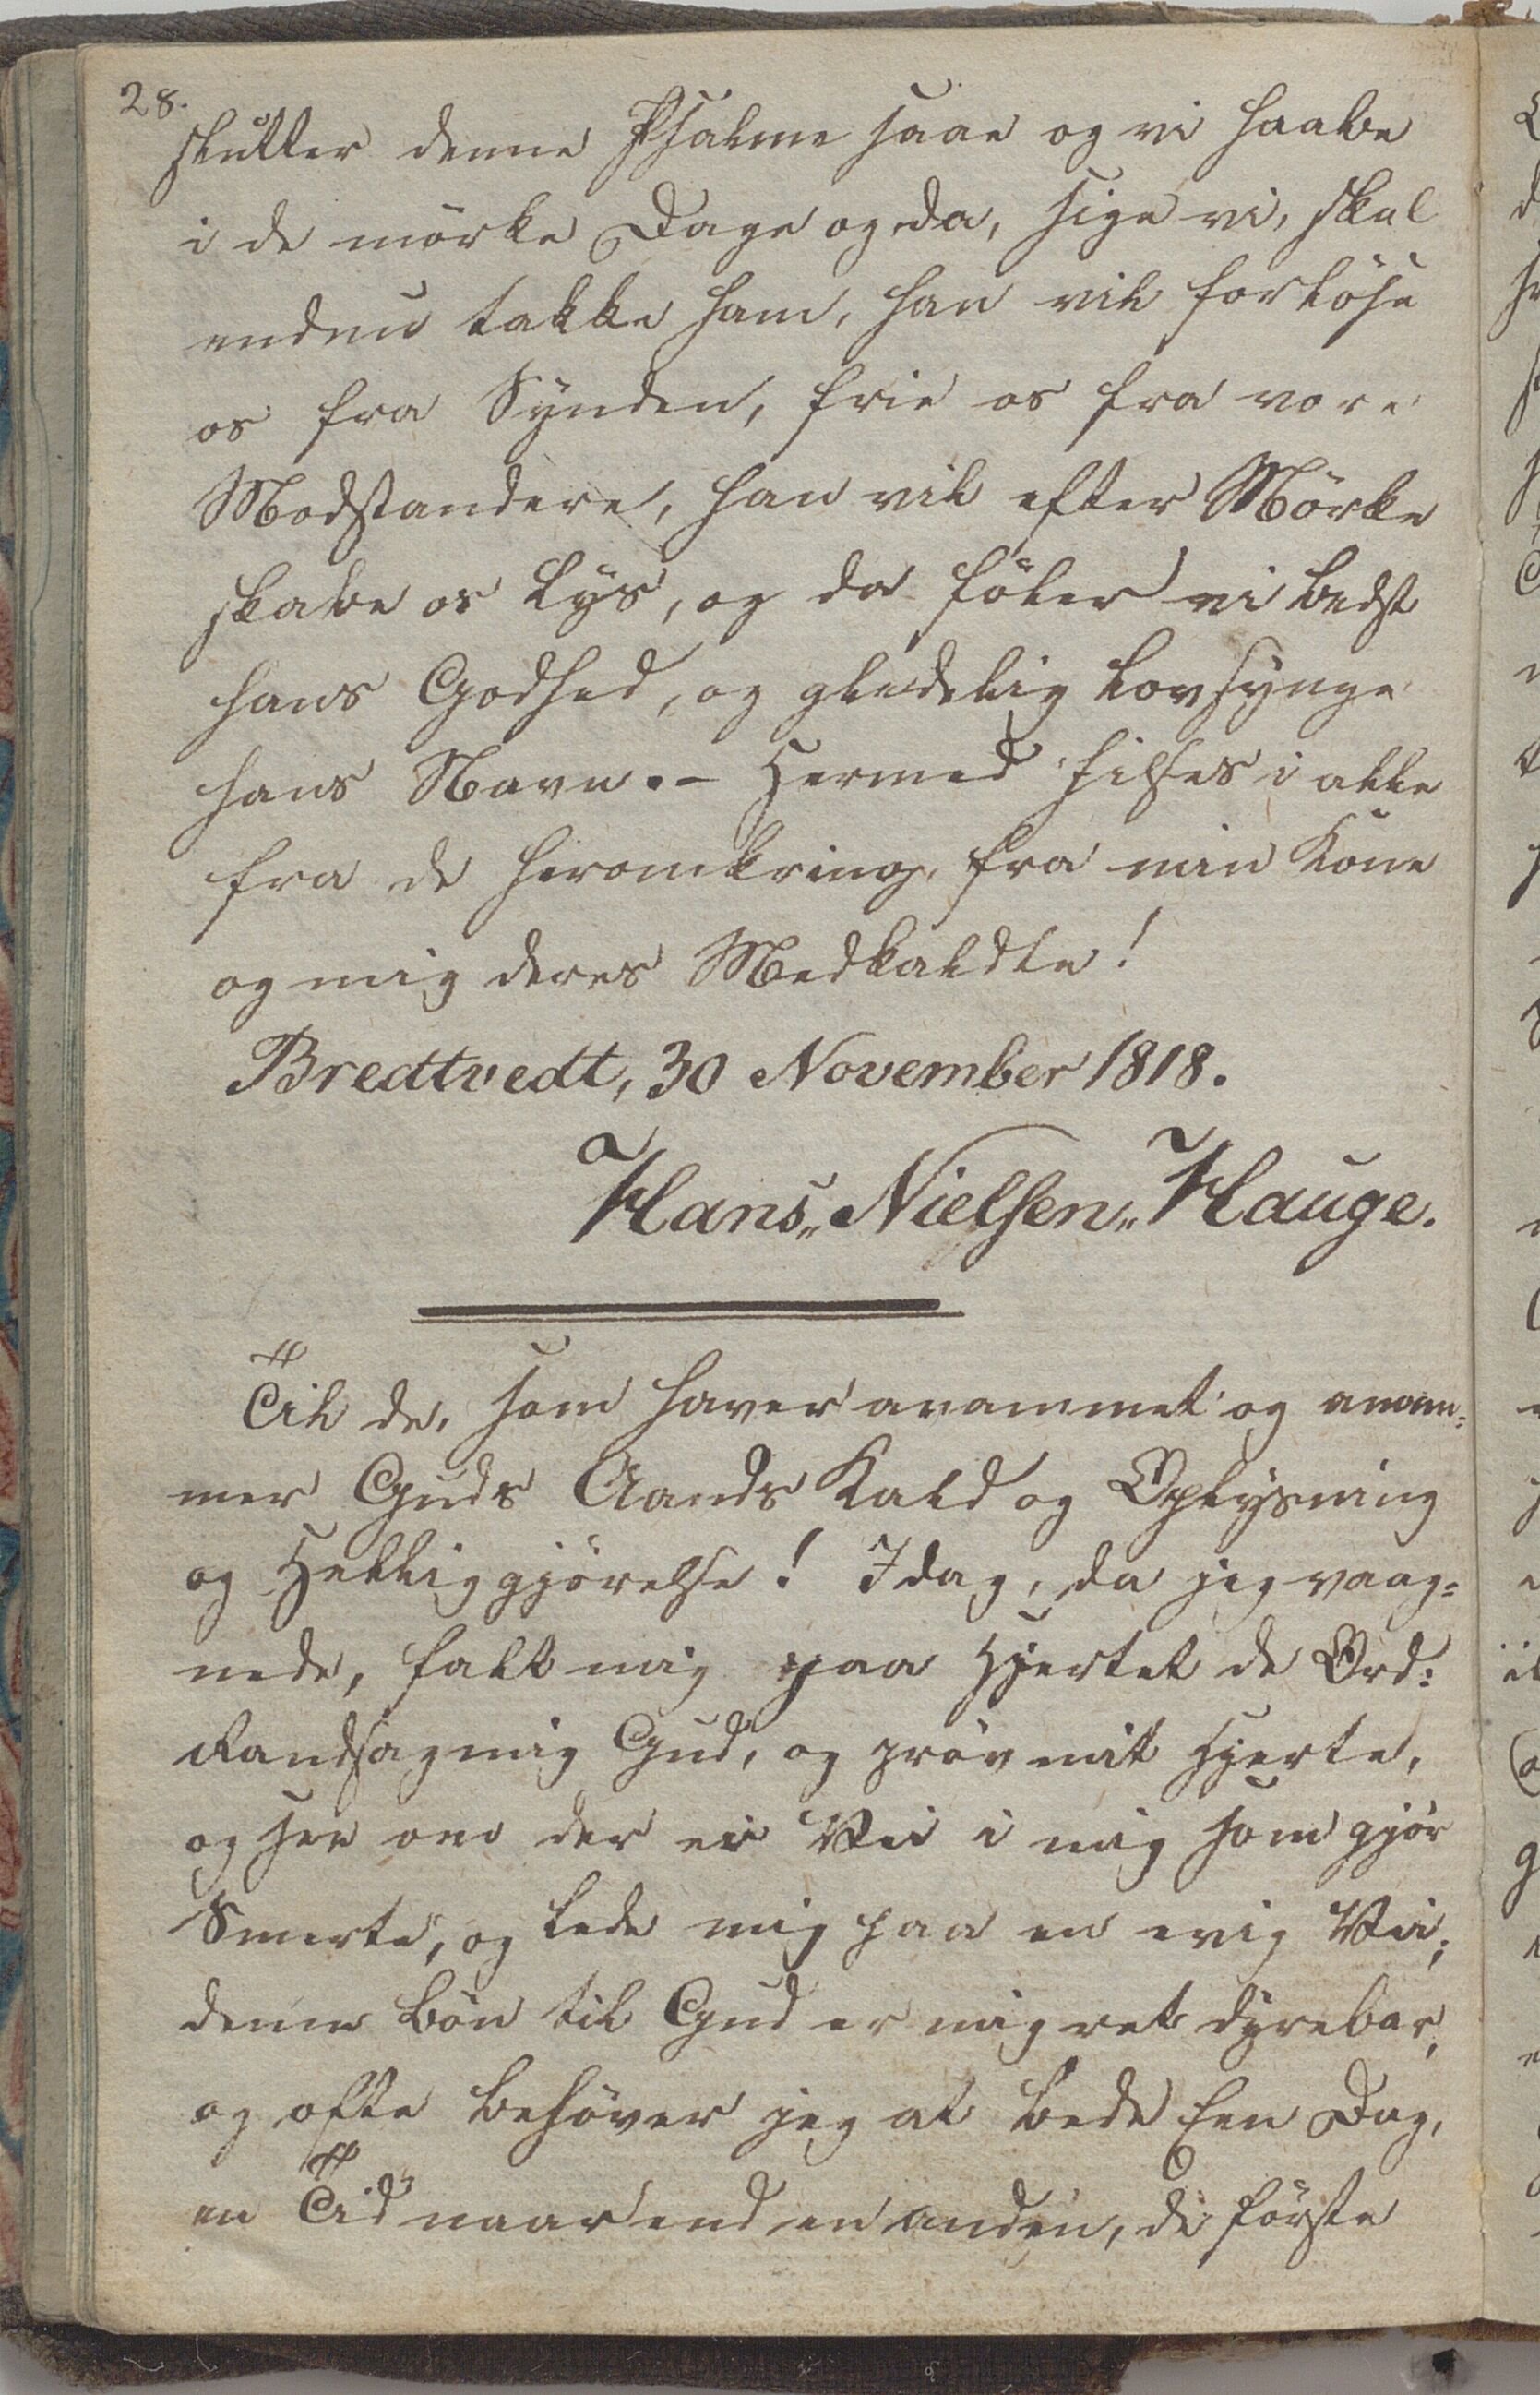 28.
slutter denne Psalme saae og vi haabe
i de mörke Dage og da, sige vi, skal
endnu takke ham, han vil forlöse
os fra Synden, frie os fra vore
Modstandere, han vil efter Mörke
skabe os Lys, og da föler vi bedst
hans Godhed, og gledelig lovsynge
hans Navn. - Hermed hilses i alle
fra de heromkring, fra min Kone
og mig deres Medkaldte!
Bredtvedt, 30 November 1818.
Hans„ Nielsen„ Hauge.
Til de, som haver anammet og anam=
mer Guds Aands Kald og Oplysning
og Helliggjörelse! Idag, da jeg vaag=
nede, falt mig paa Hjertet de Ord:
Randsag mig Gud, og pröv mit Hjerte,
og see om der er Vei i mig som gjör
Smerte, og lede mig paa en evig Vei;
denne Bön til Gud er mig ret dyrebar,
og ofte behöver jeg at bede Een Dag,
en Tid naar end en anden, de förste